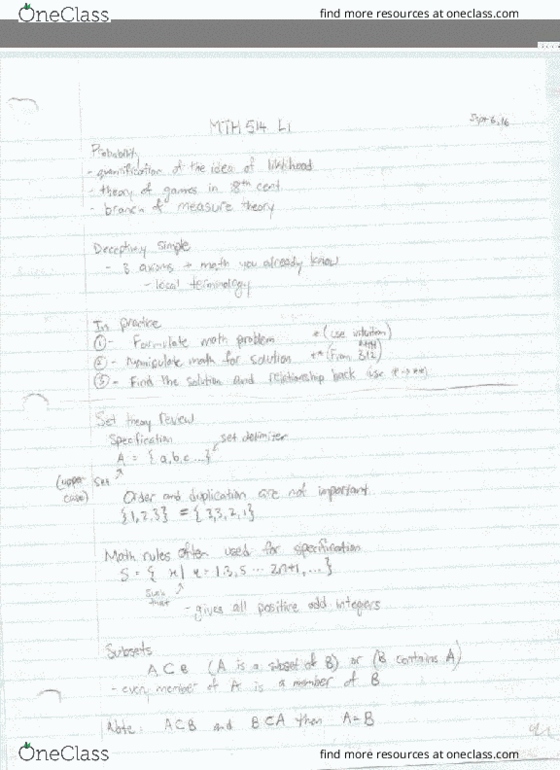 OneClass
find more resources at oneclass.com
MTH 514 L1
Sept 6, 16
Probability
- quantification of the idea of liklihood
- theory of games in 18th cent.
- branch of measure theory
Deceptively simple
- 3 axioms + math you already know
- local terminology
In practice
① - Formulate math problem * (use intuition)
② - Manipulate math for solution ** (From
③ - Find the solution and relationship back (use * → **)
Set theory review
Specification
set delimiter
A = {a,b,c...}
(upper case) set
Order and duplication are not important
{1,2,3} = {3,3,2,1}
Math rules often used for specification
S = { x | x = 1,3,5 ... 2n+1, ... }
such that
- gives all positive odd integers
Subsets
A ⊂ B (A is a subset of B) or (B contains A)
- every member of A is a member of B
Note: A ⊂ B and B ⊂ A then A = B
OneClass
find more resources at oneclass.com